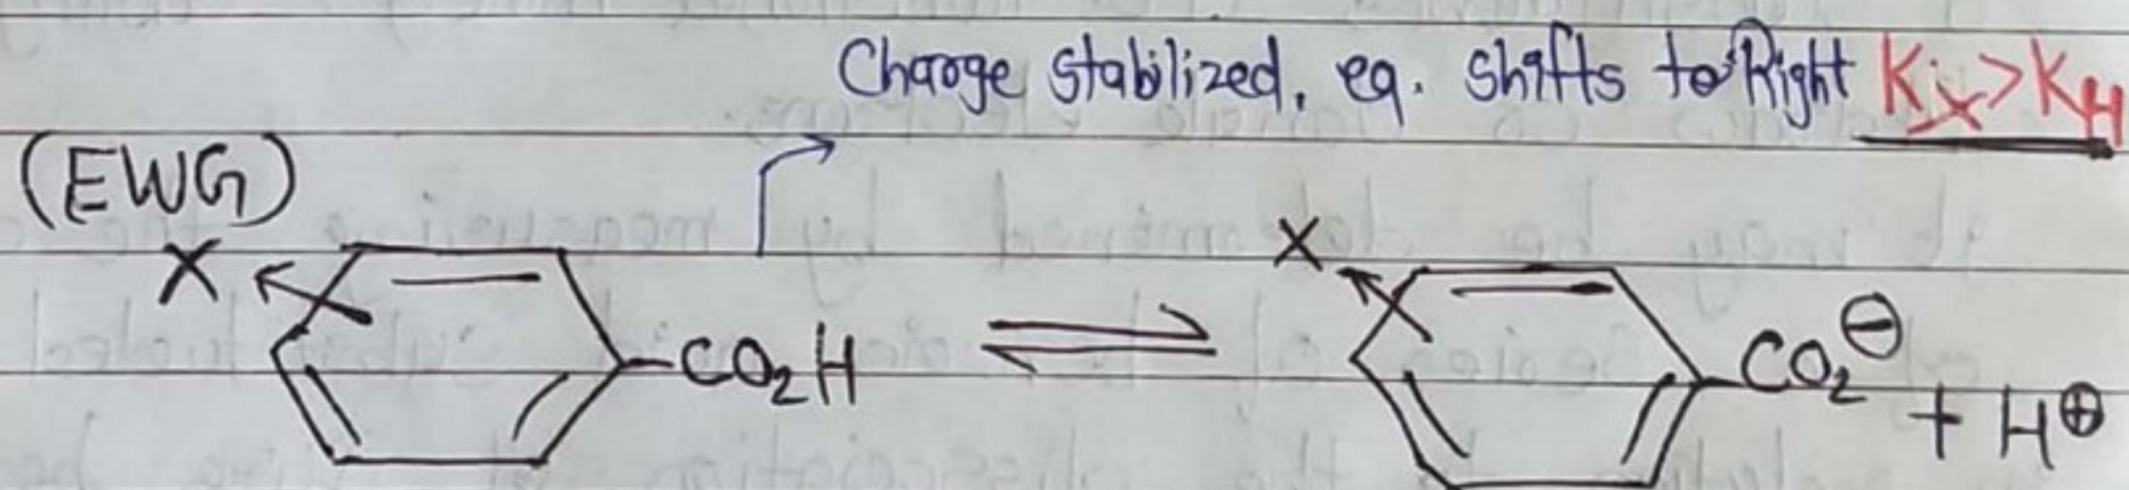 Charge stabilized, eq. shifts to Right Kx>KH
(EWG)
X CO₂H ⇌ X CO₂⊖ + H⊕